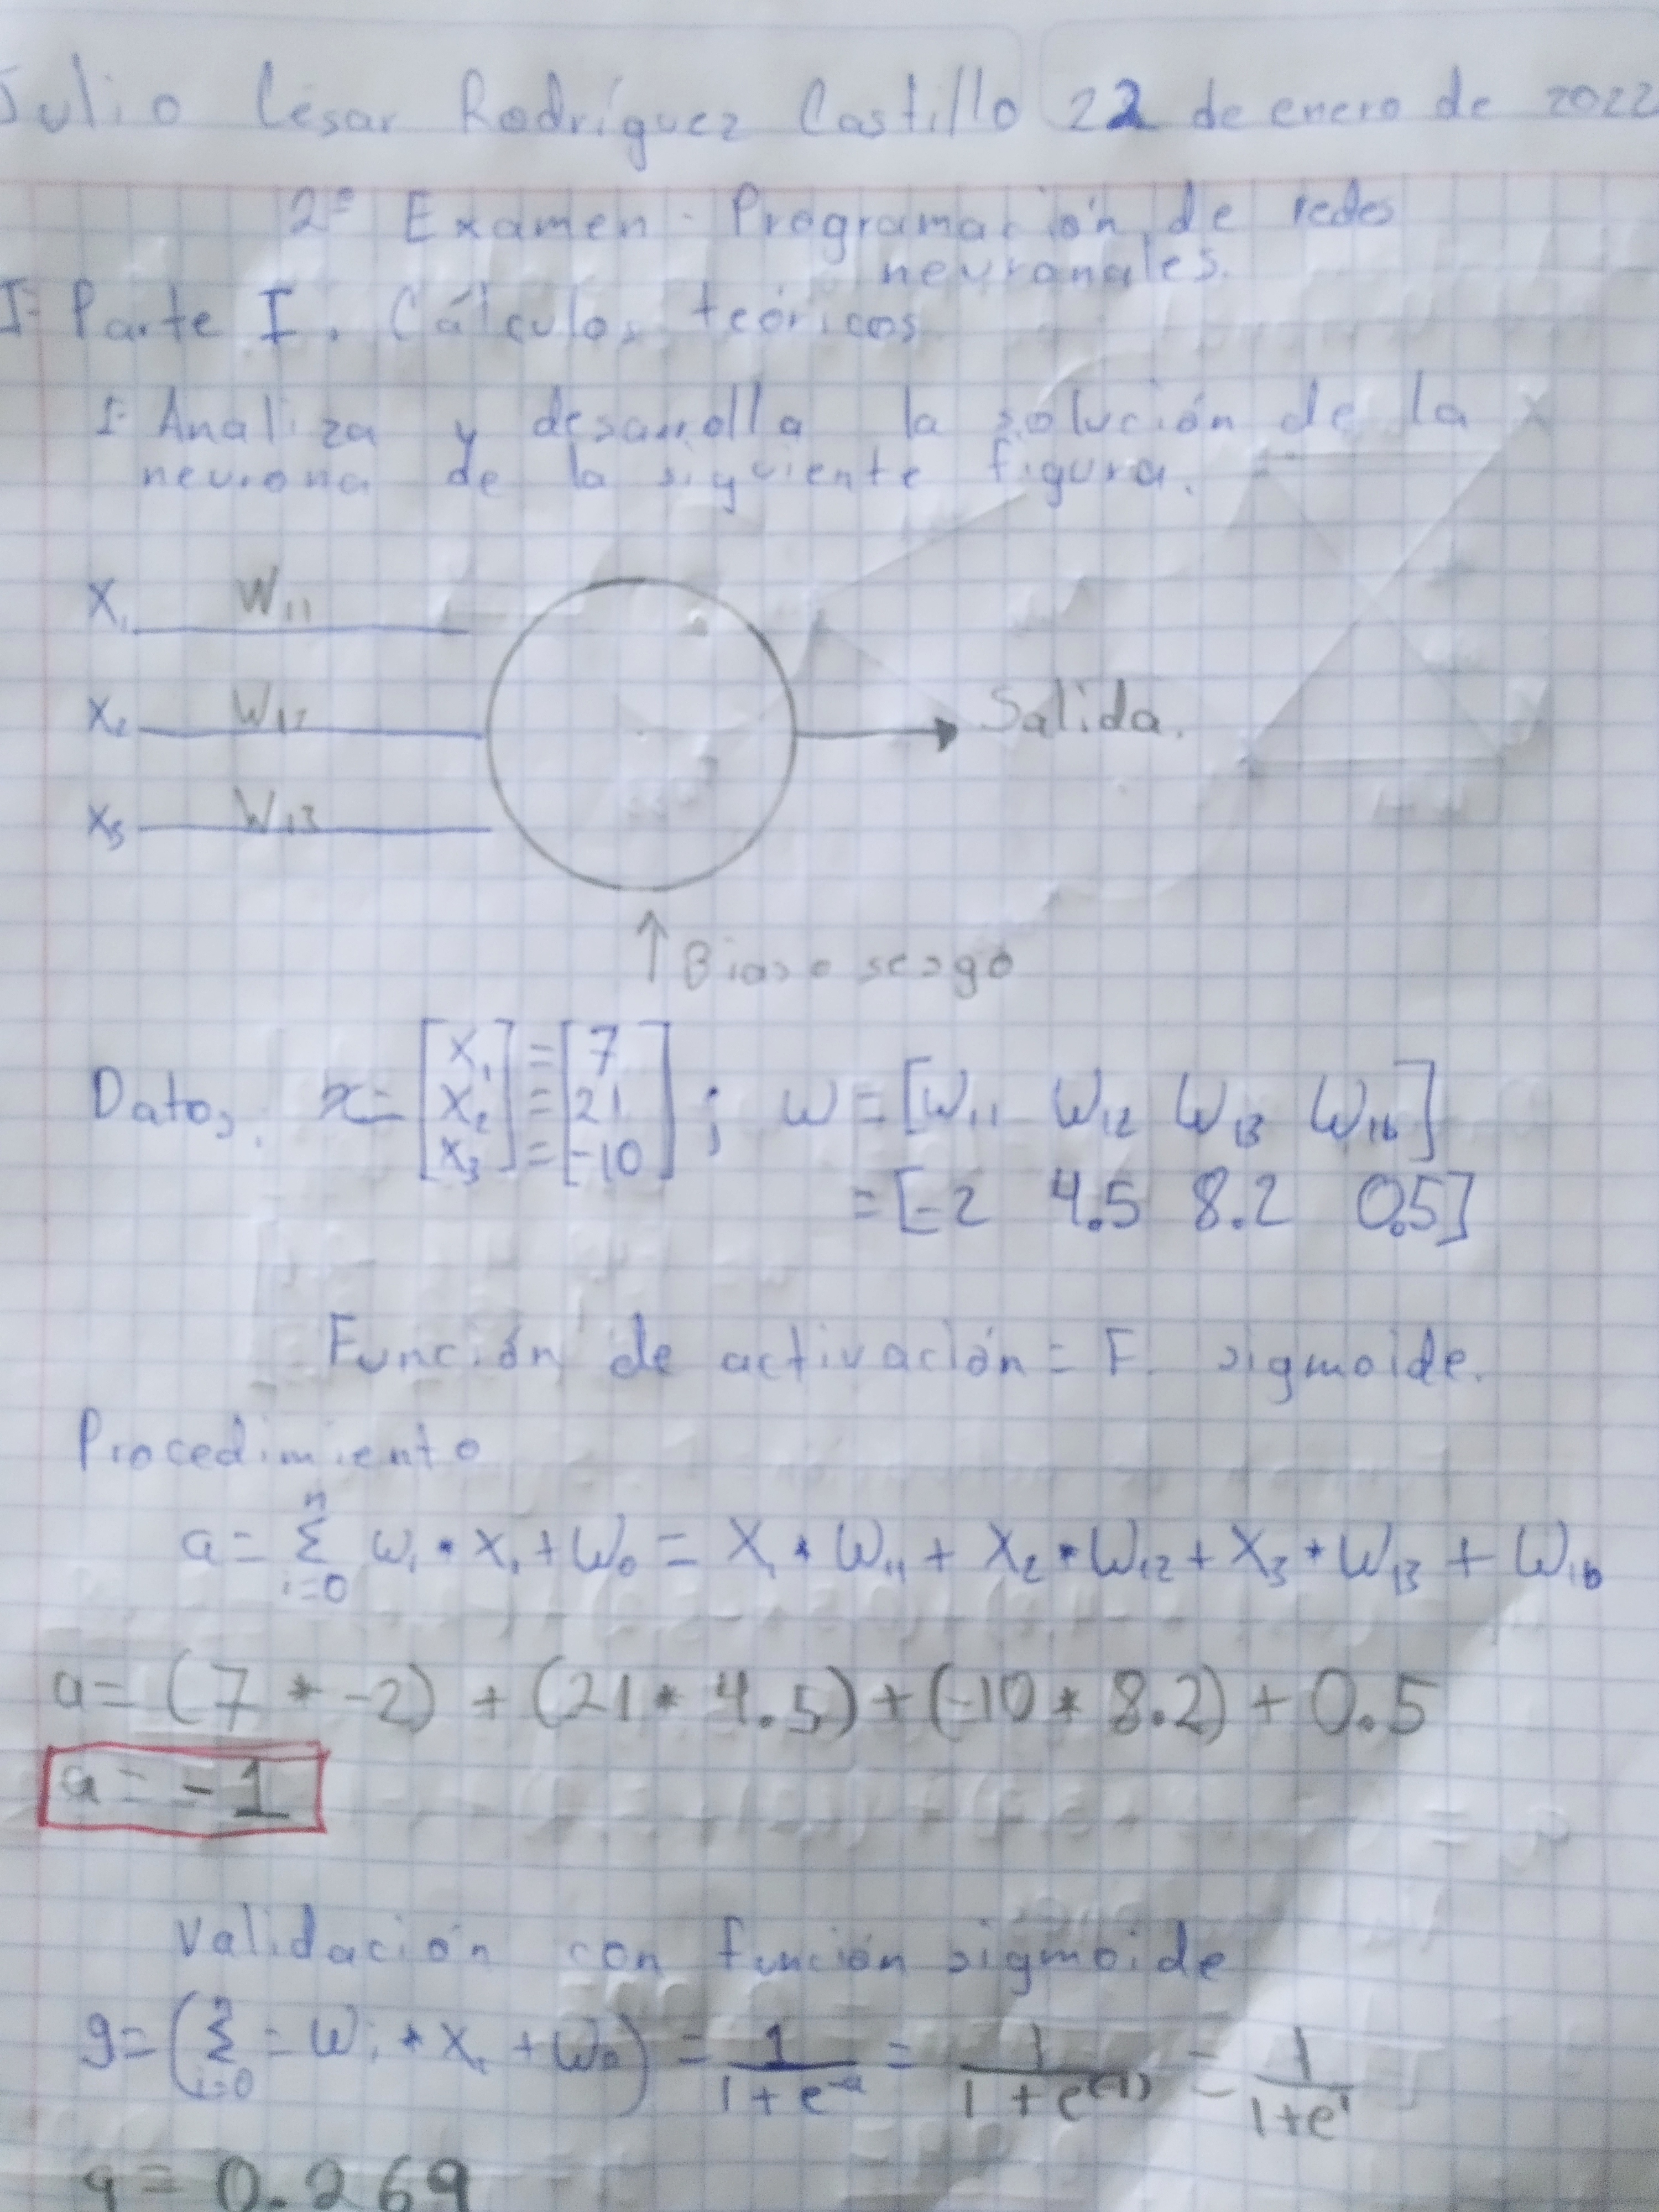 Julio César Rodríguez Castillo 22 de enero de 2022
2º Examen - Programación de redes
neuronales.
I- Parte I. Cálculos teóricos
I- Analiza y desarrolla la solución de la
neurona de la siguiente figura.
X₁ W₁₁
X₂ W₁₂ Salida.
X₃ W₁₃
↑ Bias o sesgo
Datos: x= [X₁ X₂ X₃] = [7 21 -10] ; w = [W₁₁ W₁₂ W₁₃ W₁b]
= [-2 4.5 8.2 0.5]
Función de activación = F. sigmoide.
Procedimiento
a = Σⁿᵢ₌₀ Wᵢ * Xᵢ + W₀ = X₁ * W₁₁ + X₂ * W₁₂ + X₃ * W₁₃ + W₁b
a = (7 * -2) + (21 * 4.5) + (-10 * 8.2) + 0.5
a = -1
Validación con función sigmoide
g = (Σⁿᵢ₌₀ = Wᵢ * Xᵢ + W₀) = 1/(1+e^-a) = 1/(1+e^(-1)) = 1/(1+e^1)
g = 0.269